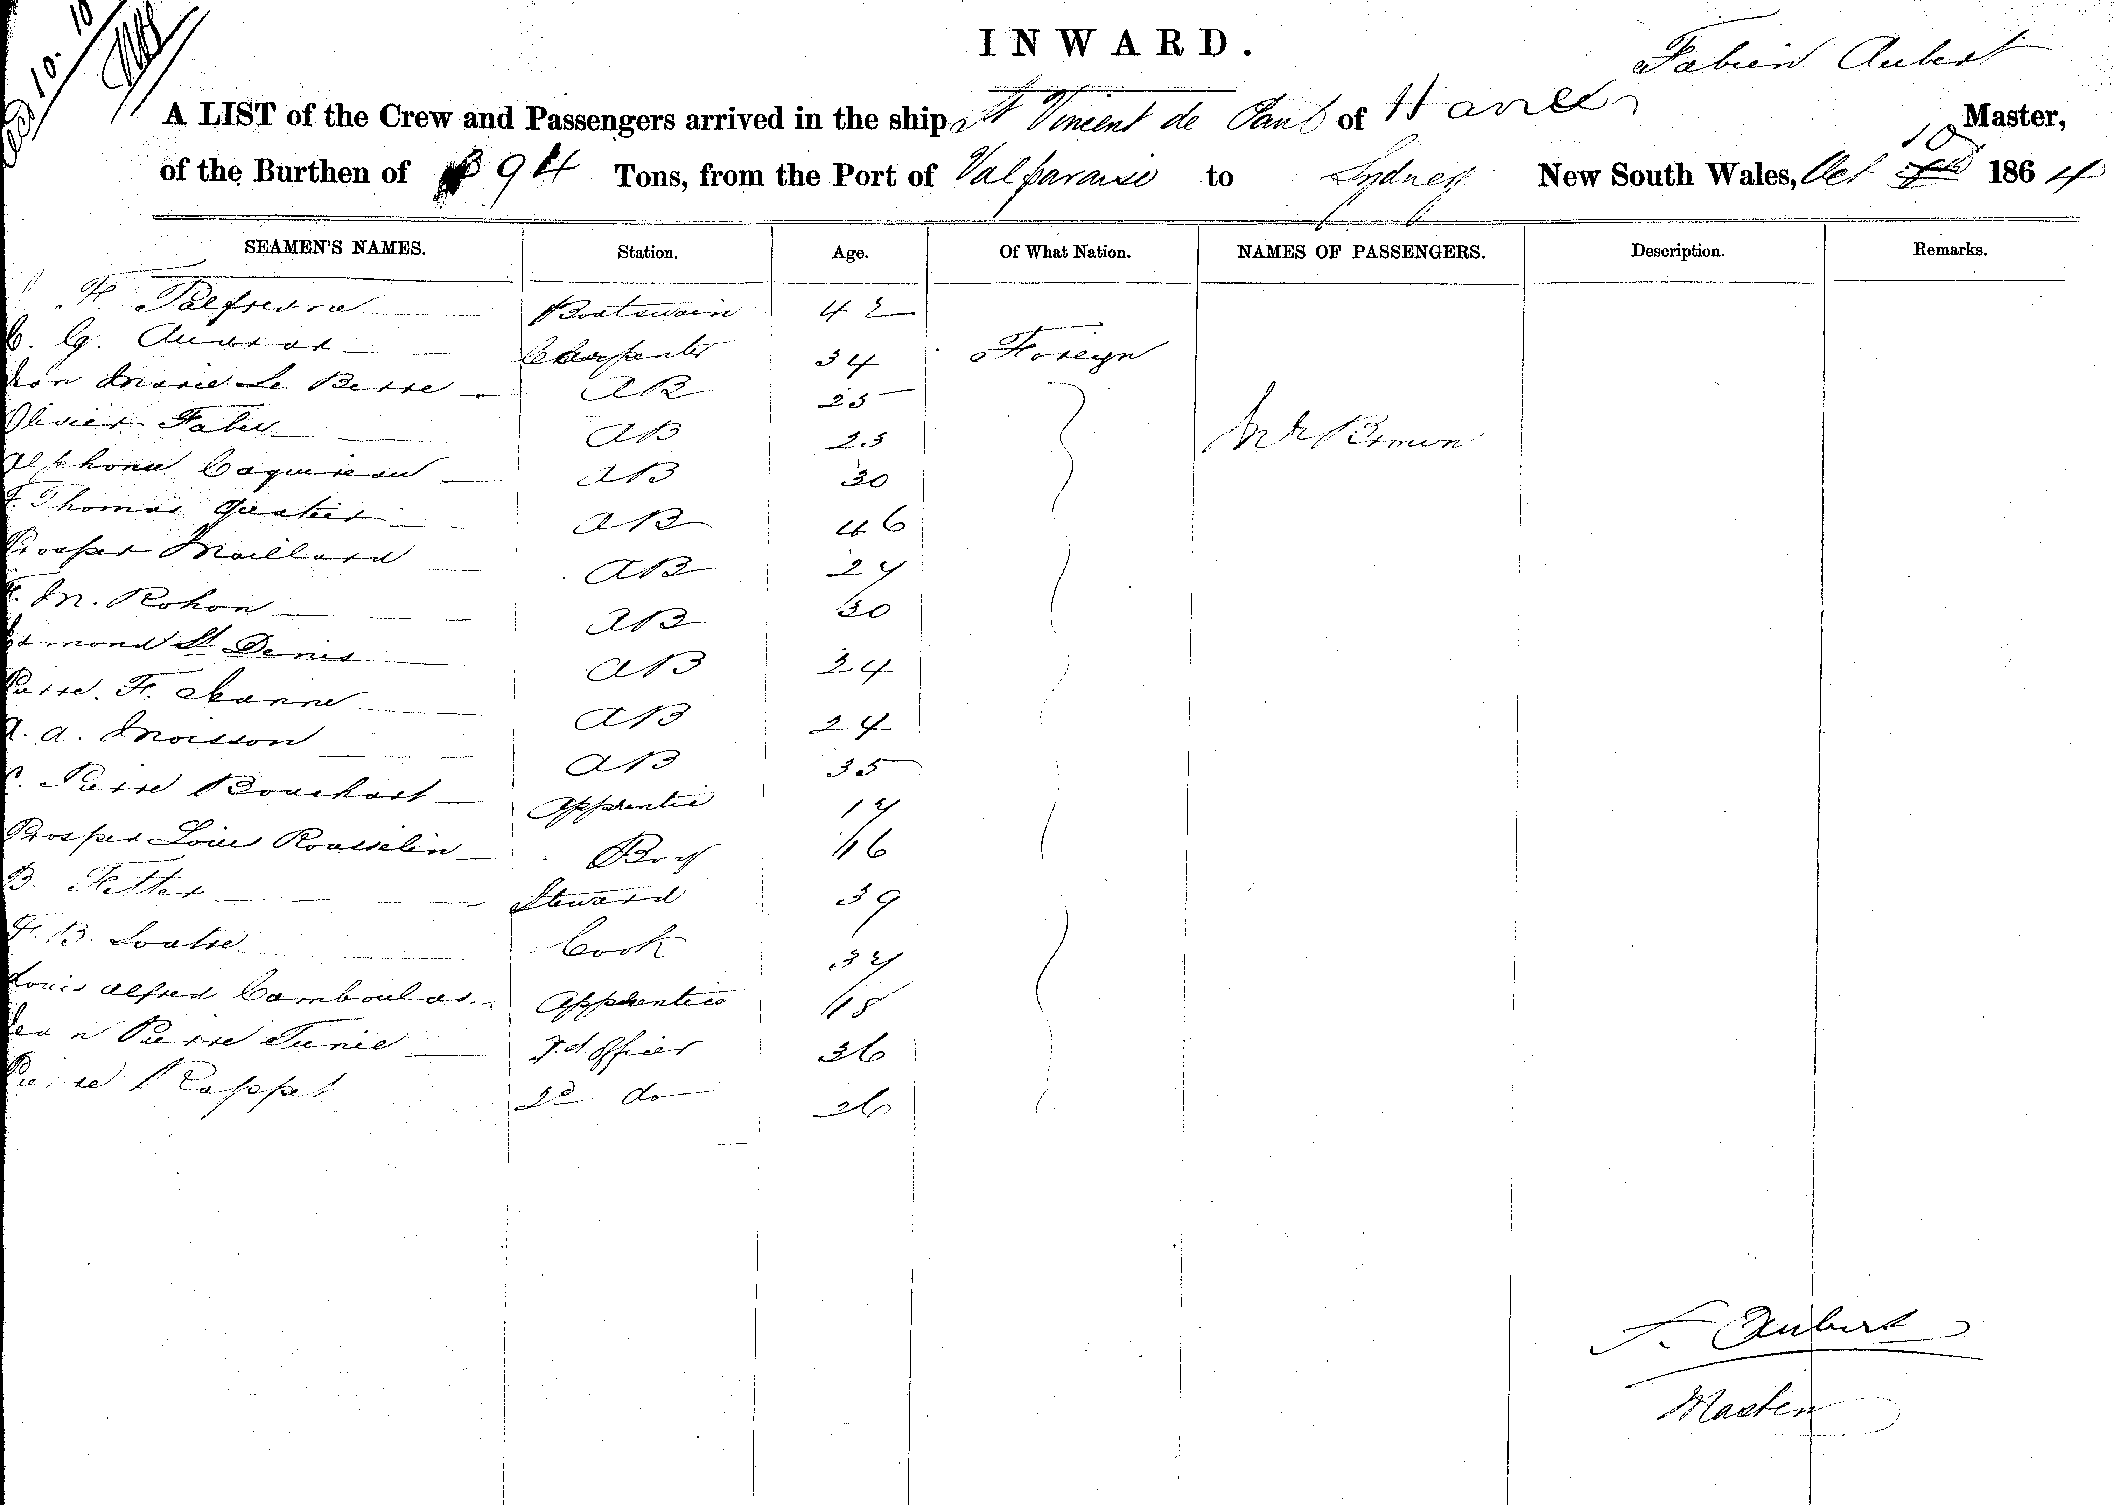 INWARD.
Fabien Aubert
A LIST of the Crew and Passengers arrived in the ship St Vincent de Paul of Havre Master,
of the Burthen of 394 Tons, from the Port of Valparaiso to Sydney New South Wales, Oct 10 1864
SEAMEN'S NAMES. Station. Age. Of What Nation. NAMES OF PASSENGERS. Description. Remarks.
Boatswain 42
Carpenter 34 Foreign
Marie Le Berre AB 25
Olivier AB 25 Mr Brown
Alphonse AB 30
F. Thomas AB 46
Prosper Maillard AB 27
M. Rohon AB 30
St Denis AB 24
Pierre. F. AB 24
A. Moisson AB 35
Pierre Bouchart Apprentice 17
Prosper Louis Rousselin Boy 16
B. Fetter Steward 39
F. B. Loutre Cook 37
Louis Alfred Camboulas Apprentice 18
Jean Pierre Officer 36
Pierre Rappel 2d do 26
F. Aubert
Master